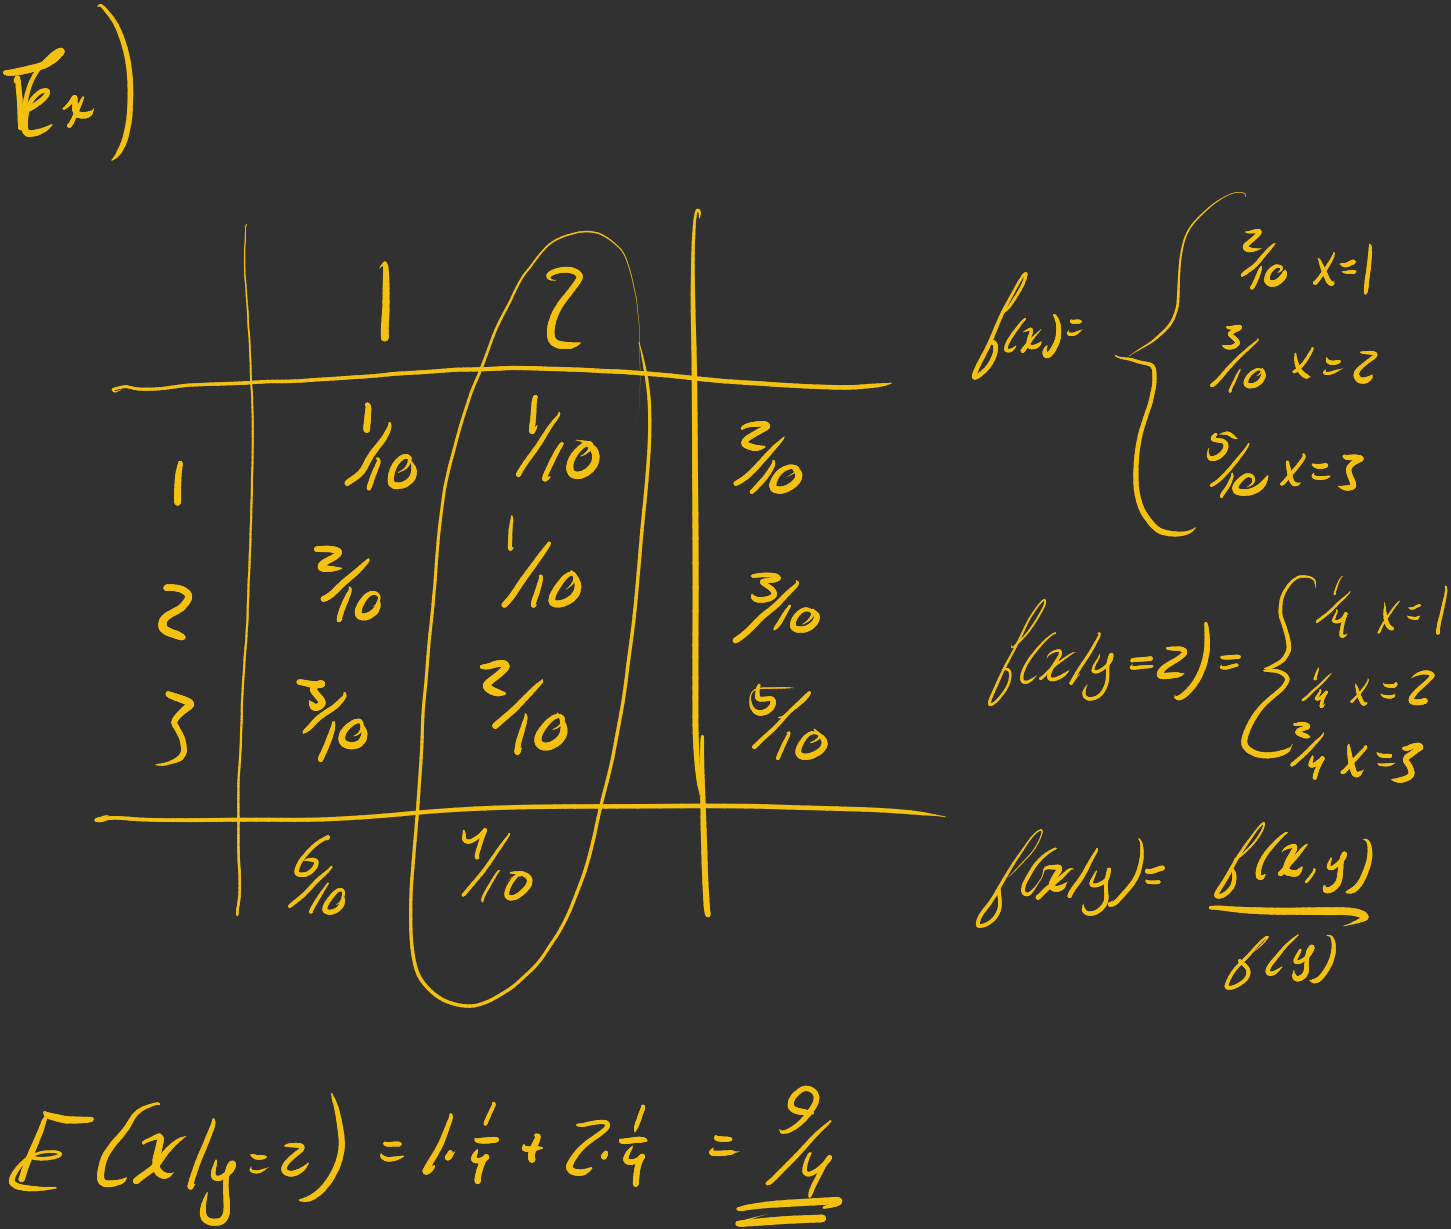 Ex)
1 2
1 1/10 1/10 2/10
2 2/10 1/10 3/10
3 3/10 2/10 5/10
6/10 4/10
f(x)= { 2/10 x=1
3/10 x=2
5/10 x=3
f(x/y=2)= { 1/4 x=1
1/4 x=2
2/4 x=3
f(x/y)= f(x,y)/f(y)
E(x/y=2) = 1·1/4 + 2·1/4 = 9/4